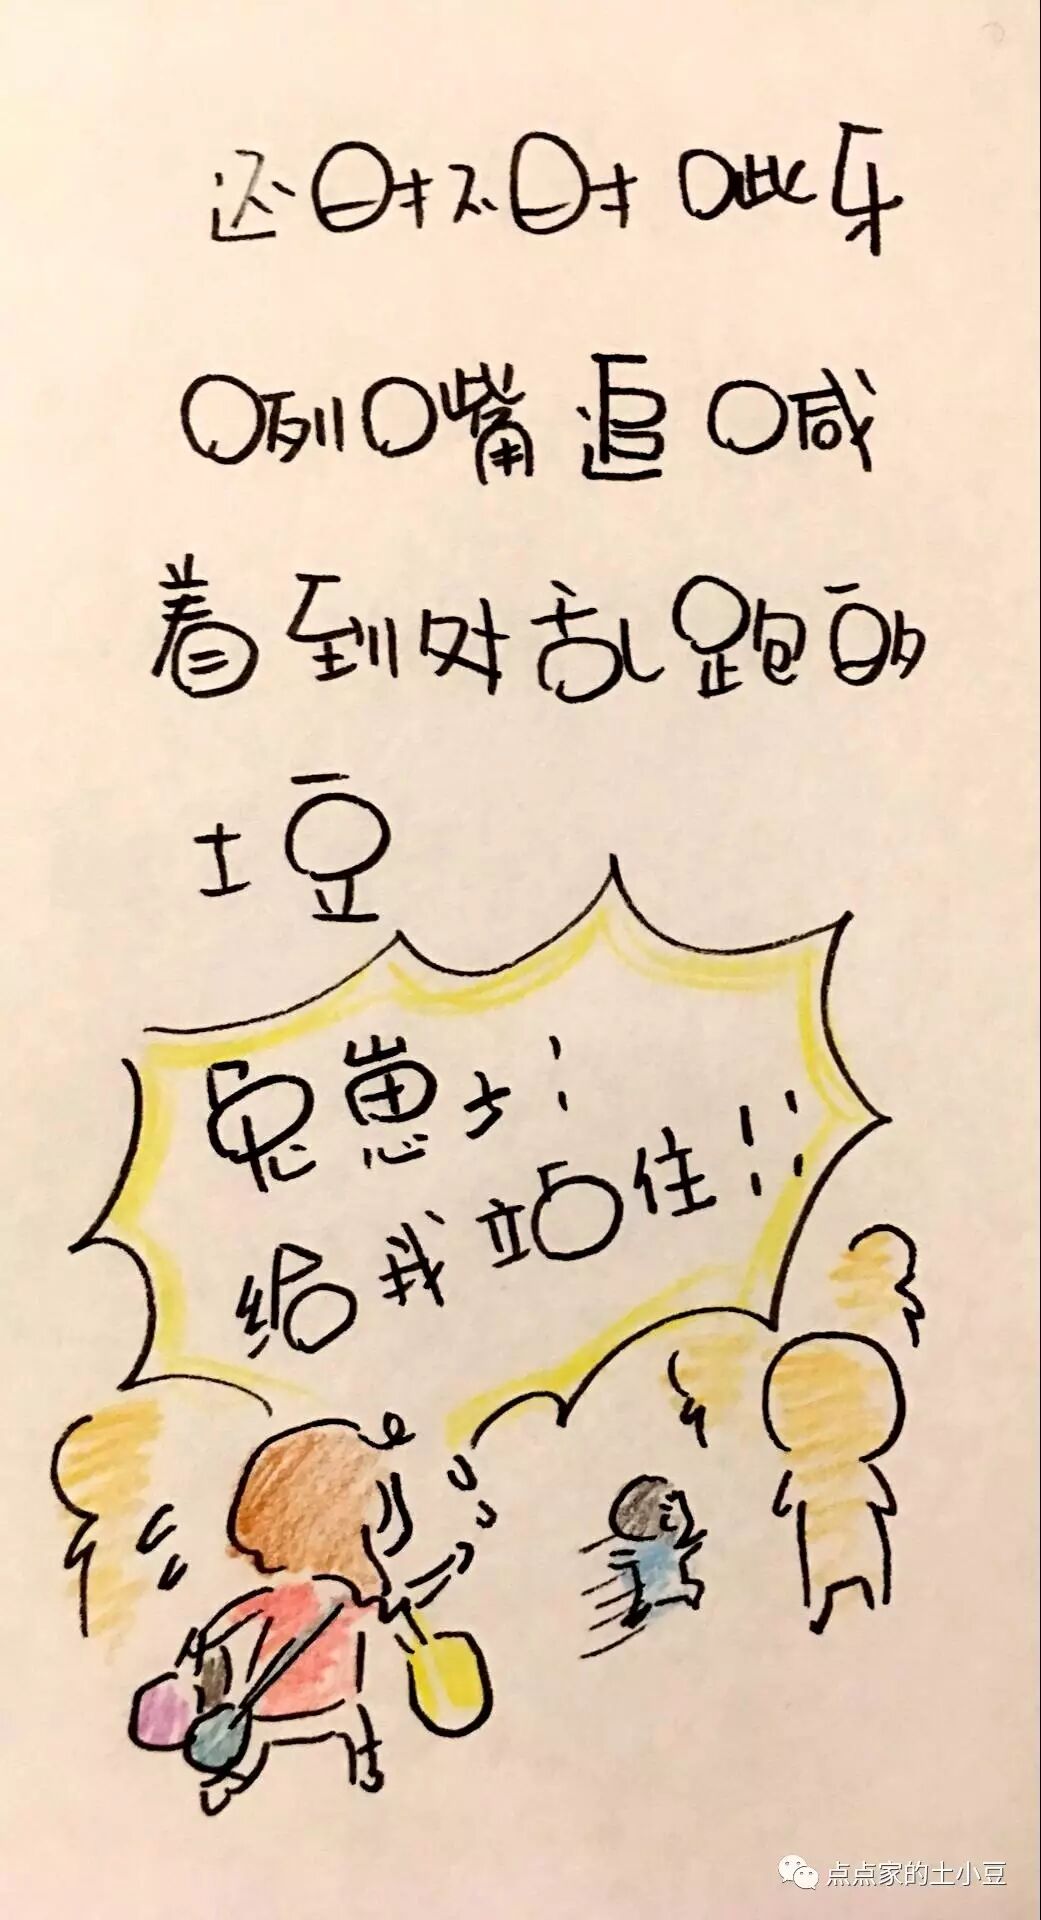 还时不时呲牙
咧嘴追喊
着到处乱跑的
土豆
兔崽子！
给我站住！！
点点家的土小豆